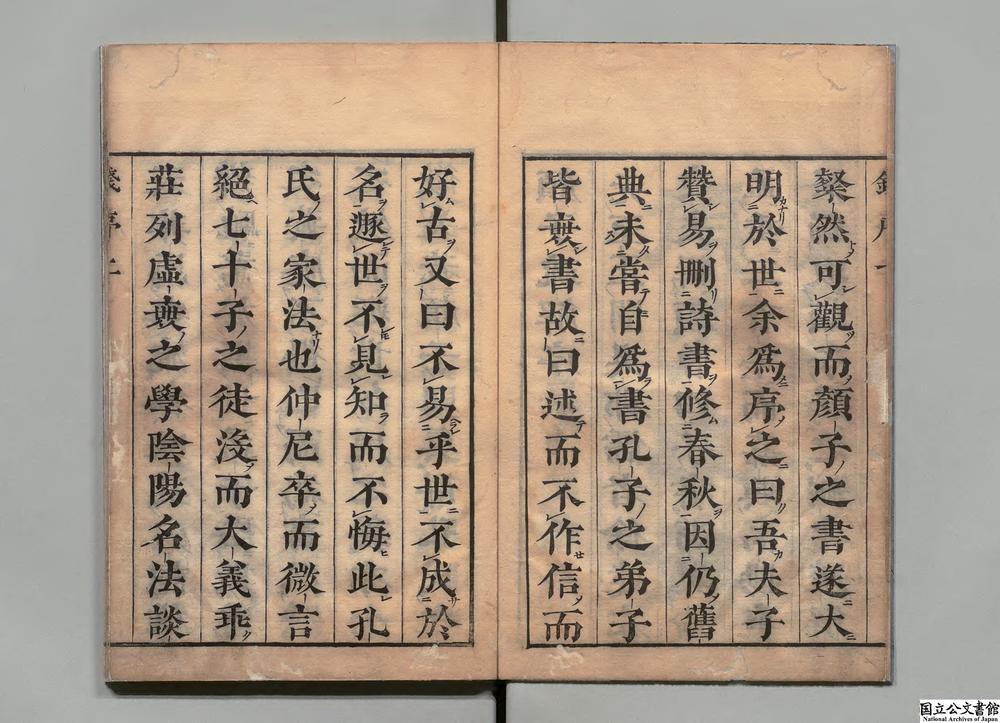 粲然可觀而顏子之書遂大
明於世余爲序之曰吾夫子
贊易刪詩書修春秋因仍舊
典未嘗自爲書孔子之弟子
皆衷書故曰述而不作信而
好古又曰不易乎世不成於
名遯世不見知而不悔此孔
氏之家法也仲尼卒而微言
絕七十子之徒沒而大義乖
莊列虛衺之學陰陽名法談
国立公文書館
National Archives of Japan